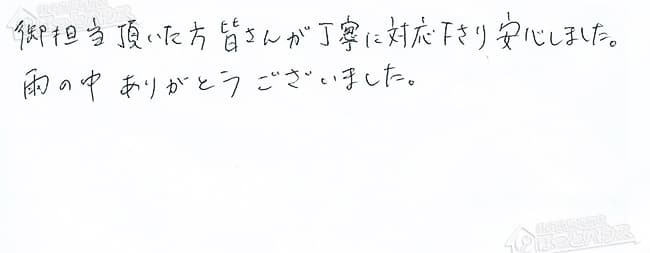 御担当頂いた方皆さんが丁寧に対応下さり安心しました。
雨の中ありがとうございました。